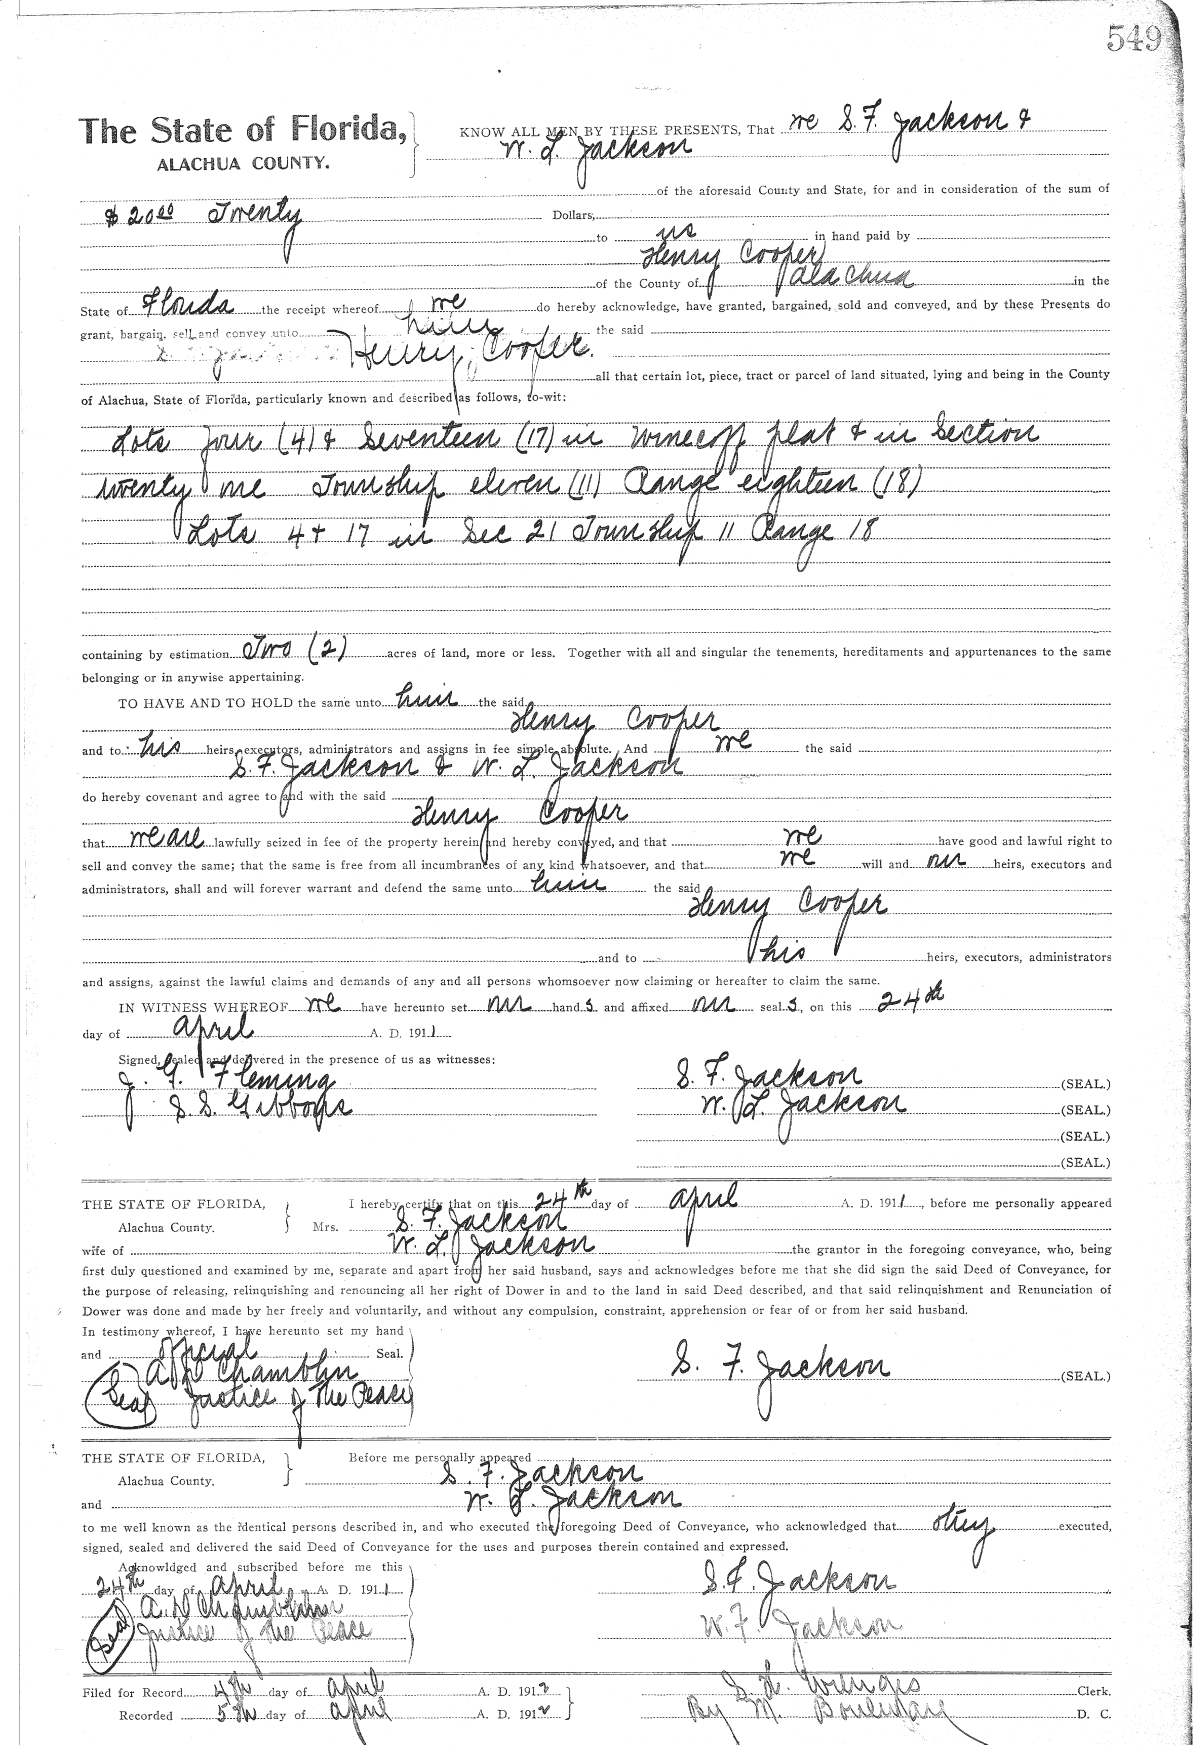 549
The State of Florida, KNOW ALL MEN BY THESE PRESENTS, That we S. F. Jackson &
ALACHUA COUNTY. W. L. Jackson
of the aforesaid County and State, for and in consideration of the sum of
$20.00 Twenty Dollars,
to us in hand paid by
Henry Cooper
of the County of Alachua in the
State of Florida the receipt whereof we do hereby acknowledge, have granted, bargained, sold and conveyed, and by these Presents do
grant, bargain, sell and convey unto him the said
Henry Cooper.
all that certain lot, piece, tract or parcel of land situated, lying and being in the County
of Alachua, State of Florida, particularly known and described as follows, to-wit:
Lots four (4) & Seventeen (17) in Winecoff plat & in Section
twenty one Township eleven (11) Range eighteen (18)
Lots 4 + 17 in Sec 21 Township 11 Range 18
containing by estimation Two (2) acres of land, more or less. Together with all and singular the tenements, hereditaments and appurtenances to the same
belonging or in anywise appertaining.
TO HAVE AND TO HOLD the same unto him the said
Henry Cooper
and to his heirs, executors, administrators and assigns in fee simple absolute. And we the said
S. F. Jackson & W. L. Jackson
do hereby covenant and agree to and with the said
Henry Cooper
that we are lawfully seized in fee of the property herein and hereby conveyed, and that we have good and lawful right to
sell and convey the same; that the same is free from all incumbrances of any kind whatsoever, and that we will and our heirs, executors and
administrators, shall and will forever warrant and defend the same unto him the said
Henry Cooper
and to his heirs, executors, administrators
and assigns, against the lawful claims and demands of any and all persons whomsoever now claiming or hereafter to claim the same.
IN WITNESS WHEREOF we have hereunto set our hands and affixed our seals, on this 24th
day of April A. D. 1911
Signed, sealed and delivered in the presence of us as witnesses:
J. G. Fleming S. F. Jackson (SEAL.)
S. S. Gibbons W. L. Jackson (SEAL.)
(SEAL.)
(SEAL.)
THE STATE OF FLORIDA, I hereby certify that on this 24th day of April A. D. 1911, before me personally appeared
Alachua County. Mrs. S. F. Jackson
wife of W. L. Jackson the grantor in the foregoing conveyance, who, being
first duly questioned and examined by me, separate and apart from her said husband, says and acknowledges before me that she did sign the said Deed of Conveyance, for
the purpose of releasing, relinquishing and renouncing all her right of Dower in and to the land in said Deed described, and that said relinquishment and Renunciation of
Dower was done and made by her freely and voluntarily, and without any compulsion, constraint, apprehension or fear of or from her said husband.
In testimony whereof, I have hereunto set my hand
and official Seal.
Chamblin S. F. Jackson (SEAL.)
Seal Justice of The Peace
THE STATE OF FLORIDA, Before me personally appeared
Alachua County. S. F. Jackson
and W. L. Jackson
to me well known as the identical persons described in, and who executed the foregoing Deed of Conveyance, who acknowledged that they executed,
signed, sealed and delivered the said Deed of Conveyance for the uses and purposes therein contained and expressed.
Acknowldged and subscribed before me this
24th day of April A. D. 1911 S. F. Jackson
Seal Justice of the Peace W. F. Jackson
Filed for Record 4th day of April A. D. 1912 Clerk.
Recorded 5th day of April A. D. 1912 By M. D. C.